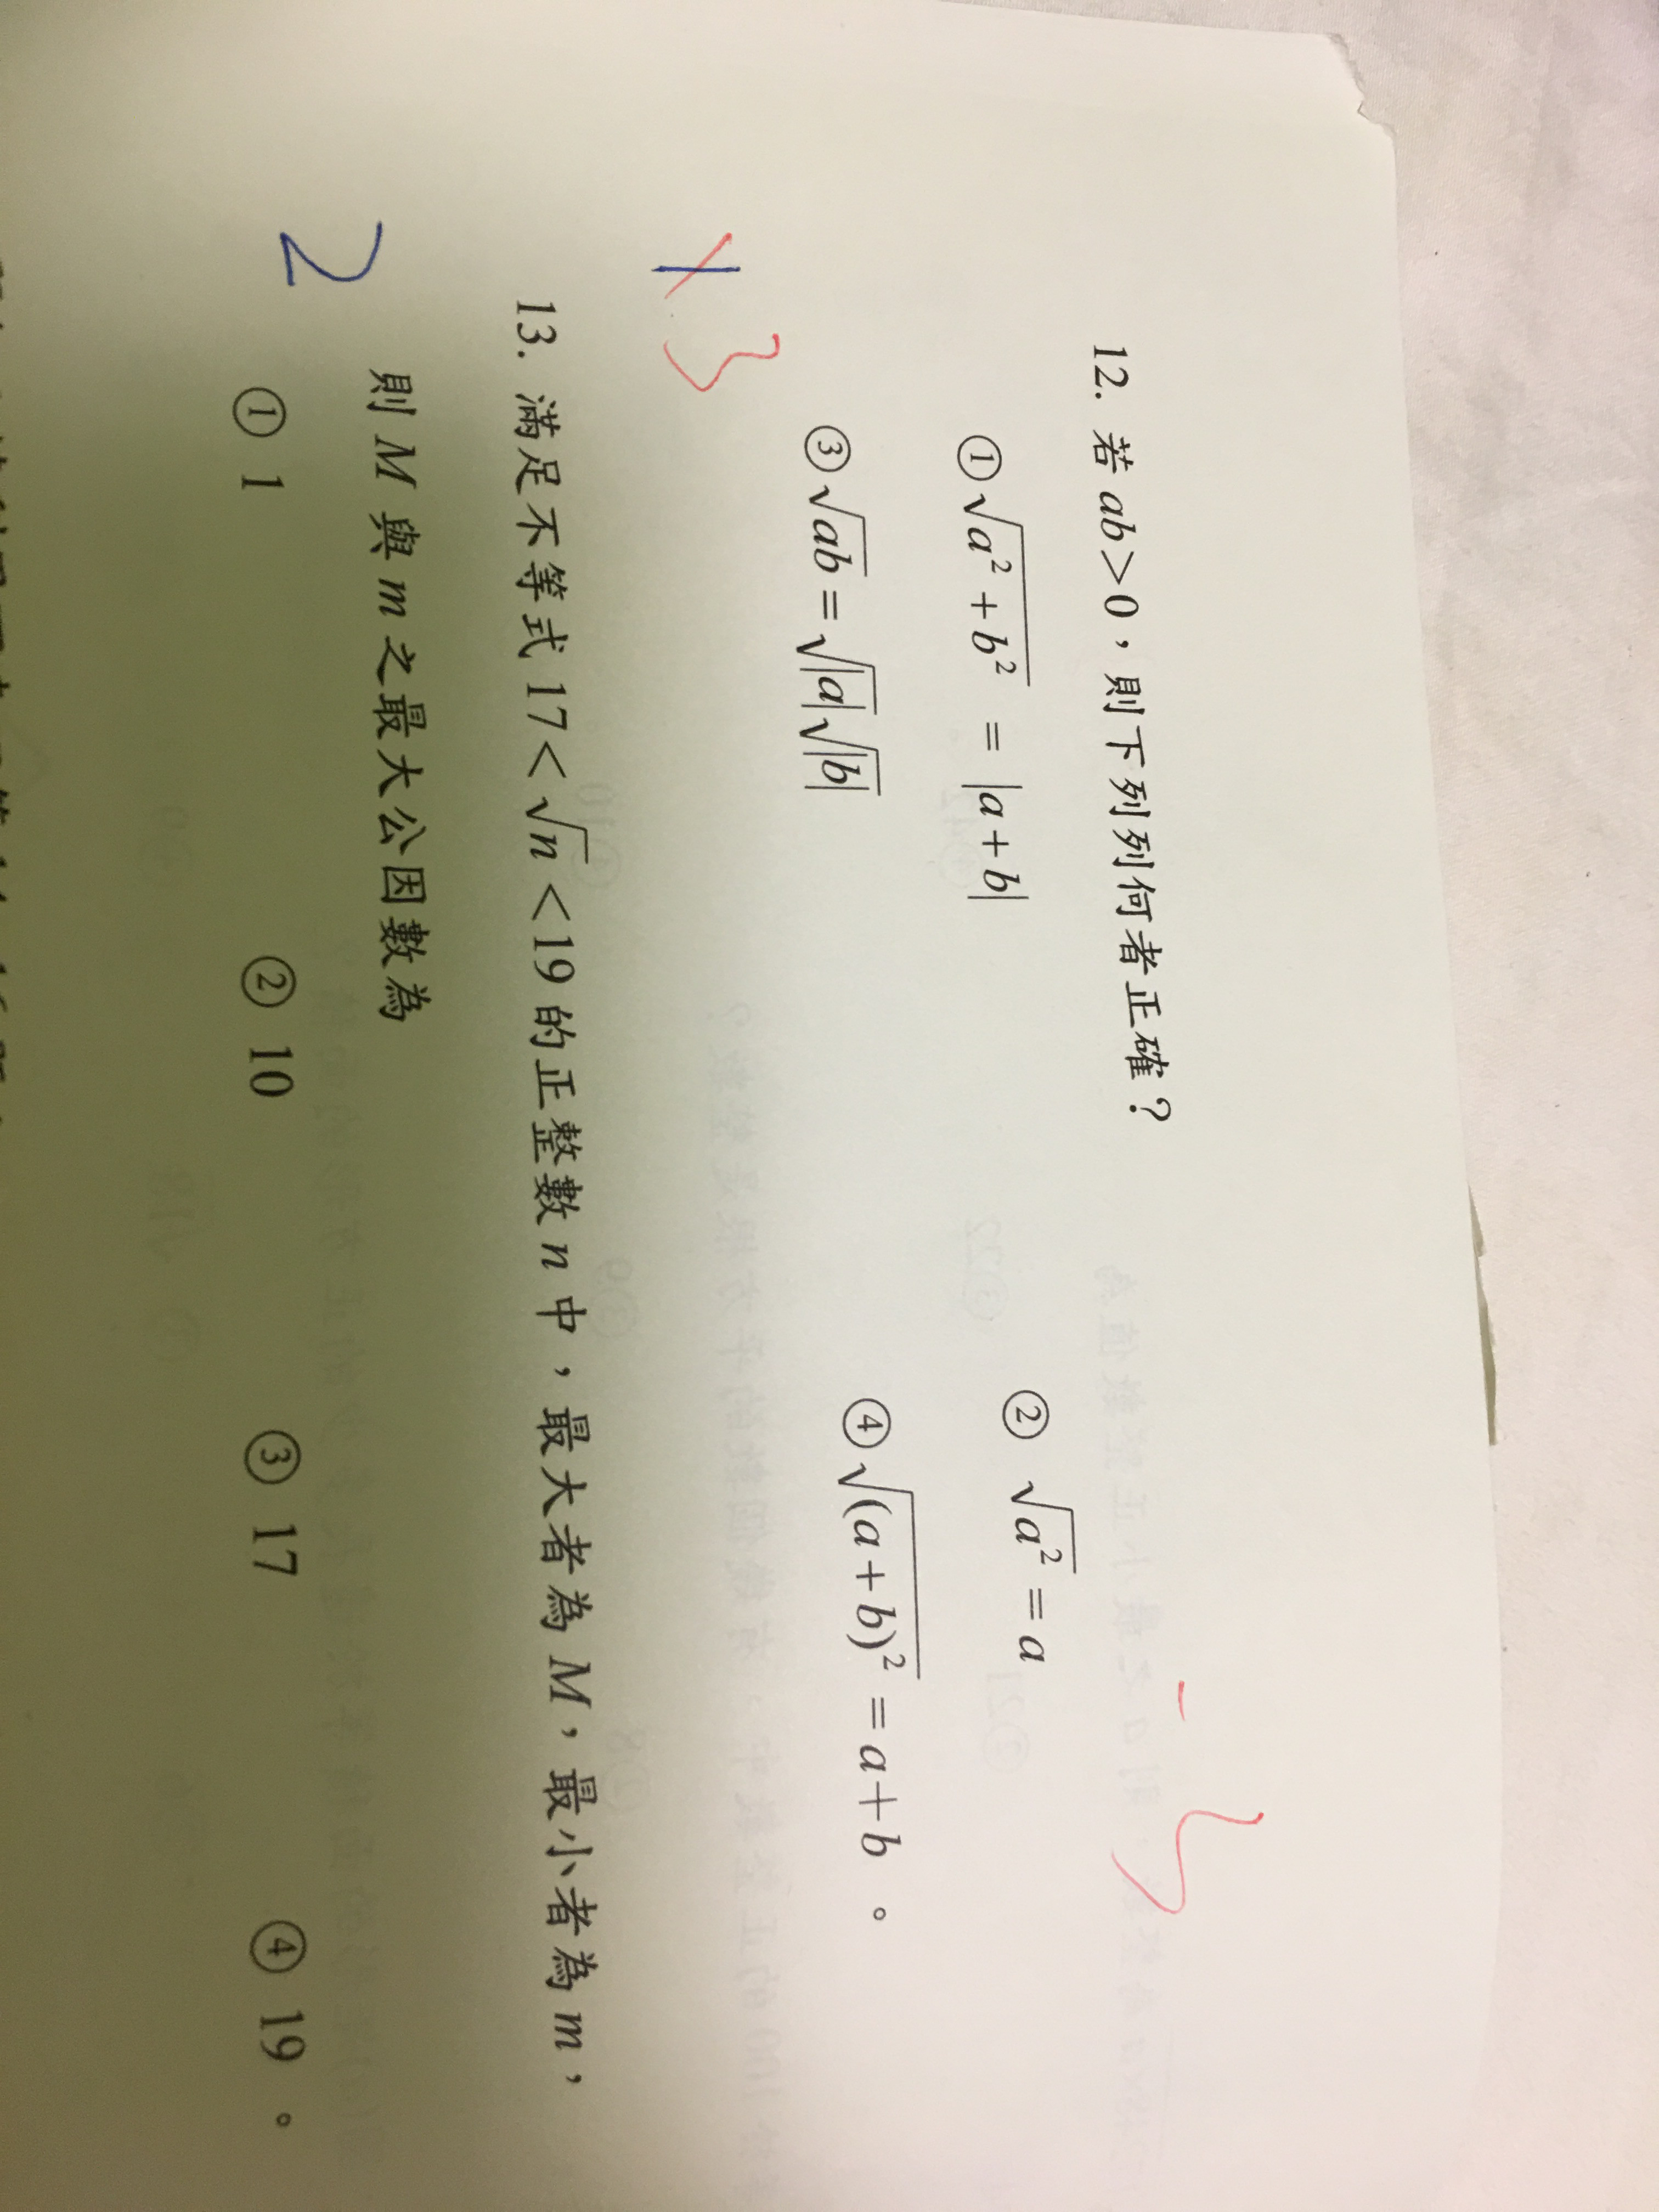 12. 若 ab>0,則下列何者正確?
① √(a²+b²) = |a+b| ② √(a²) = a
③ √(ab) = √|a| √|b| ④ √((a+b)²) = a+b 。
1 3
13. 滿足不等式 17<√n<19 的正整數 n 中,最大者為 M,最小者為 m,
則 M 與 m 之最大公因數為
2
① 1 ② 10 ③ 17 ④ 19 。